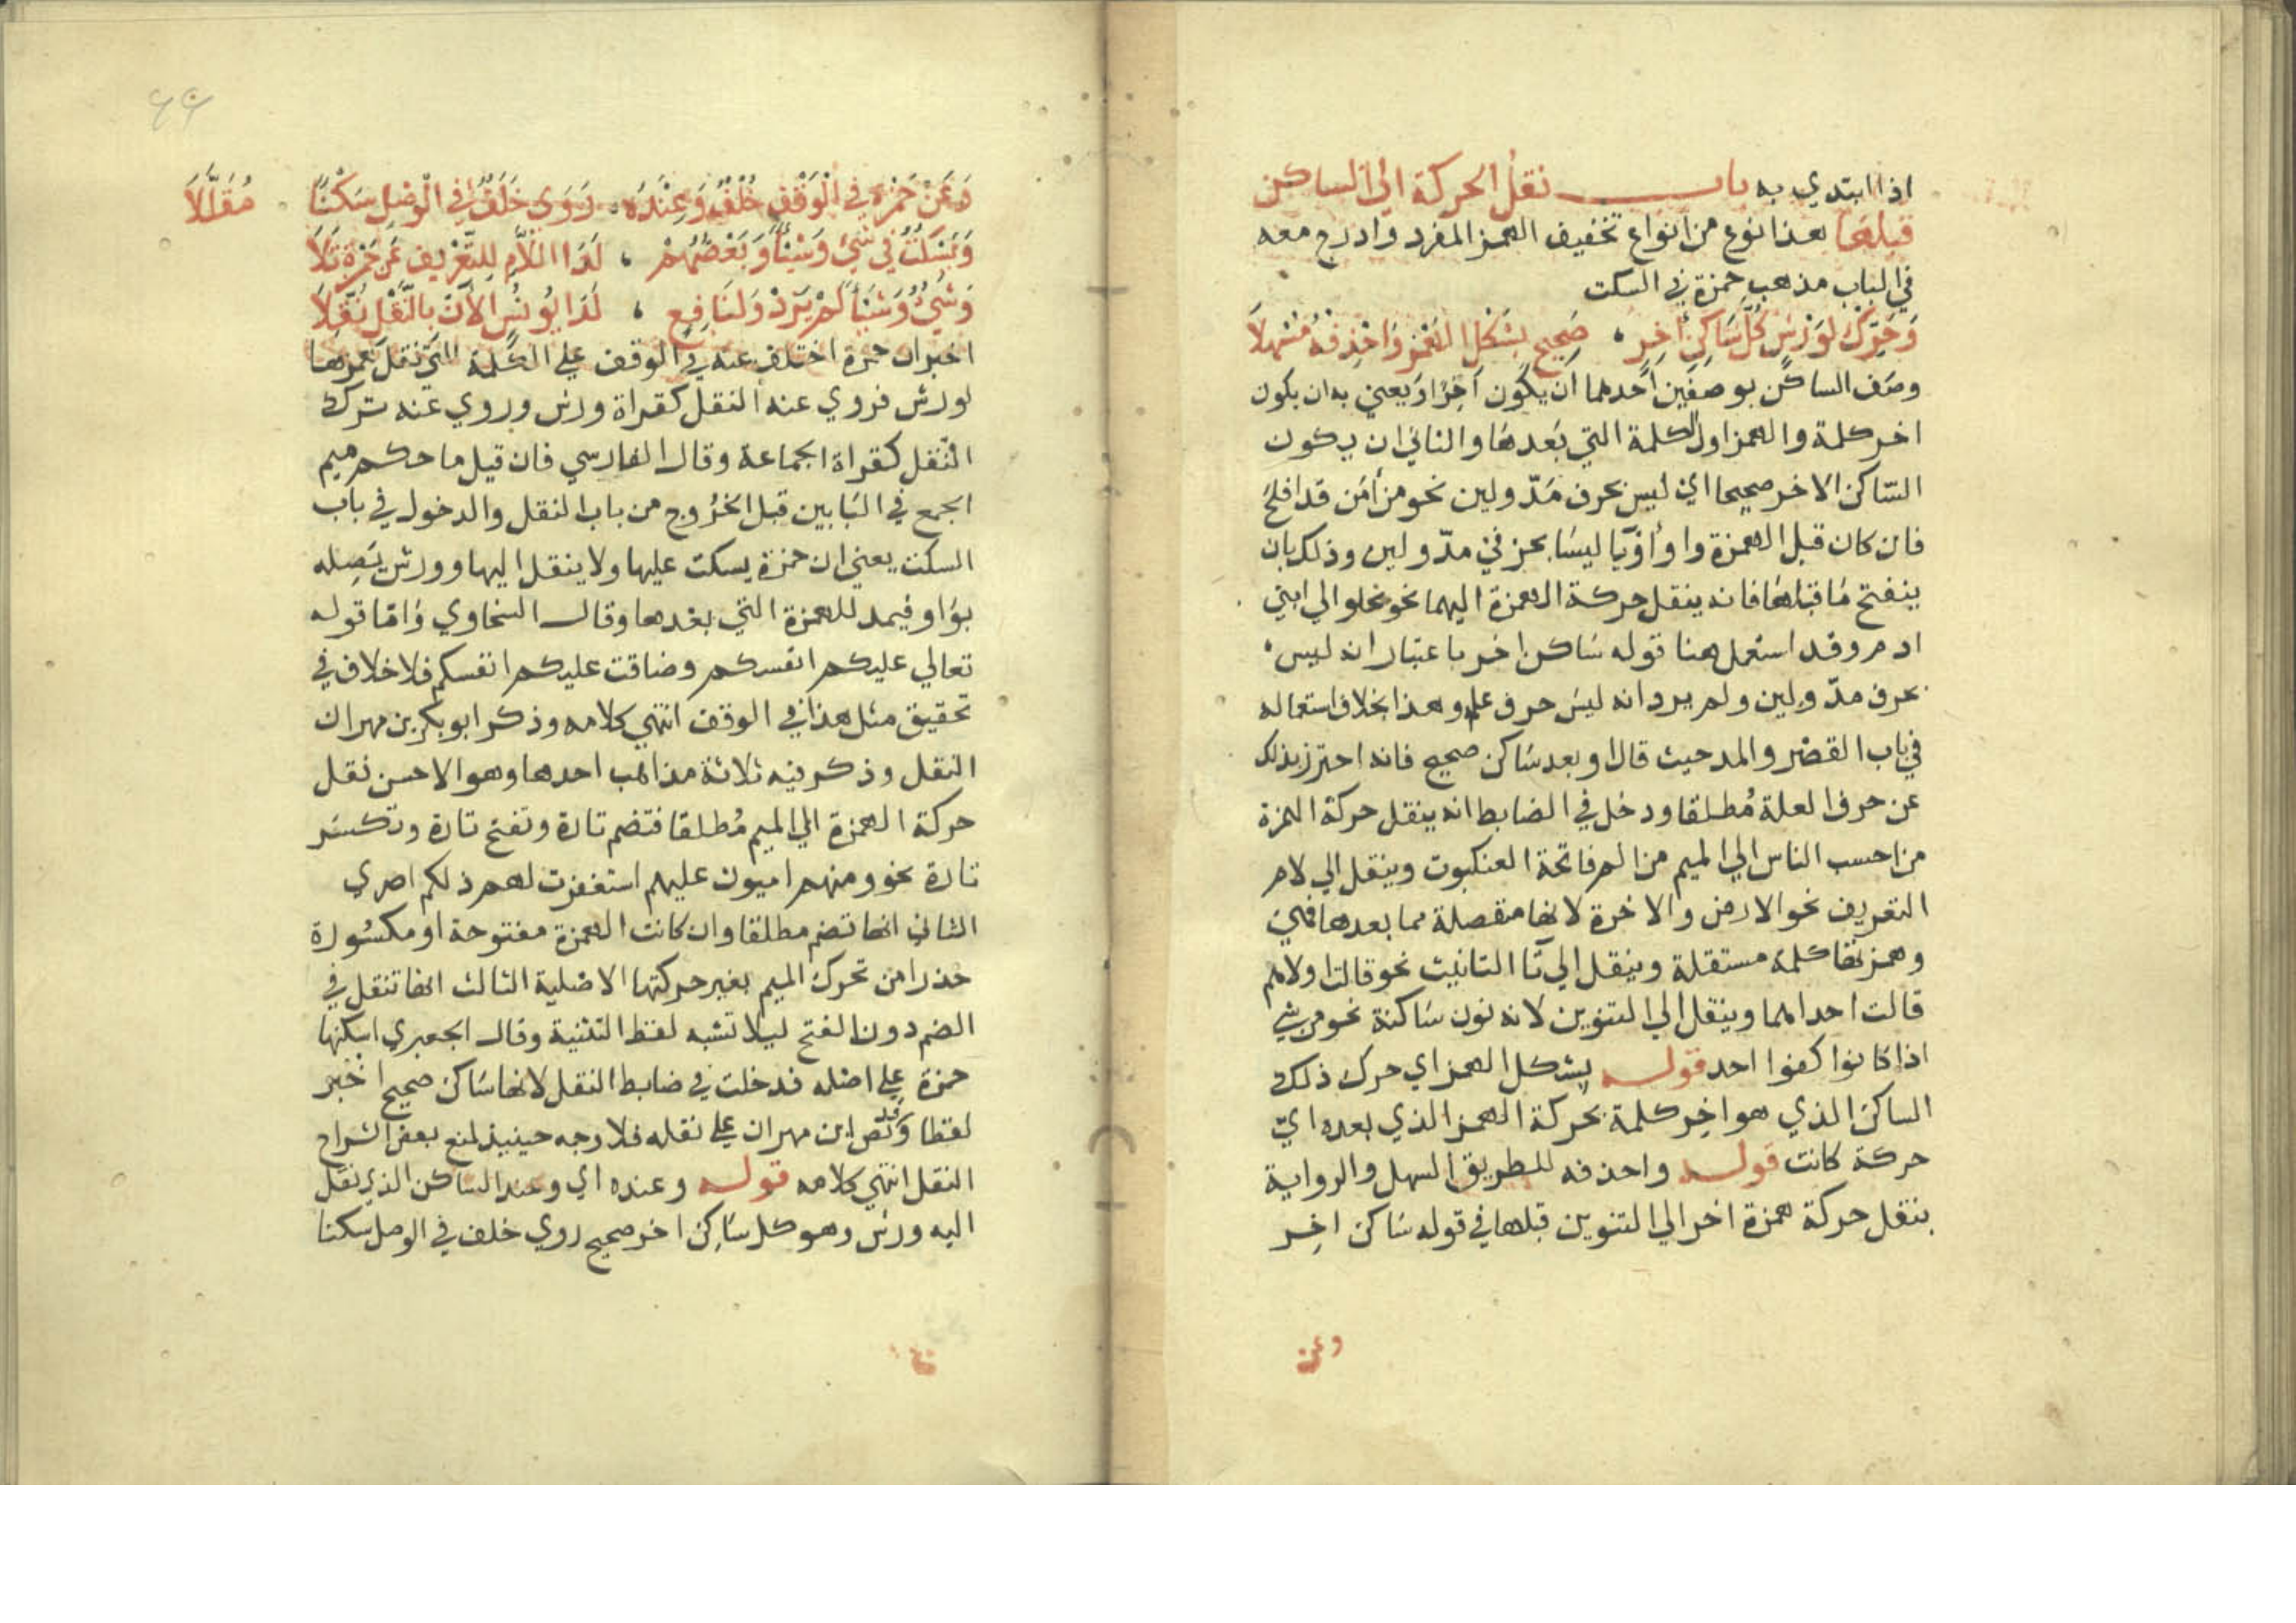 اذا ابتدي به باب نقل الحركة الي الساكن
قبلها هذا نوع من انواع تخفيف الهمز المفرد وادرج معه
في الباب مذهب حمزة في السكت
وَحَرِّكْ لوَرْشٍ كُلَّ سَاكِنِ آخِرٍ ، صَحِيحٍ بِشَكْلِ الهَمْزِ وَاحْذِفْهُ مُسْهِلاَ
وصف الساكن بوصفين احدهما ان يكون آخرا ويعني به ان يكون
اخر كلمة والهمز اول الكلمة التي بعدها والثاني ان يكون
الساكن الاخر صحيحا اي ليس بحرف مدّ ولين نحو من آمن قد افلح
فان كان قبل الهمزة واو أو يا ليسا بحرفي مدّ ولين وذلك بان
ينفتح ما قبلها فانه ينقل حركة الهمزة اليهما نحو خلوا الي ابني
ادم وقد استعمل هنا قوله ساكن اخر باعتبار انه ليس
بحرف مدّ ولين ولم يرد انه ليس حرف علة وهذا بخلاف استعماله
في باب القصر والمد حيث قال او بعد ساكن صحيح فانه احترز بذلك
عن حرف العلة مُطلقا ودخل في الضابط انه ينقل حركة الهمزة
من احسب الناس الي الميم من الم فاتحة العنكبوت وينقل الي لام
التعريف نحو الارض والاخرة لانها منفصلة مما بعدها فهي
وهمزتها كلمة مستقلة وينقل الي تا التانيث نحو قالت اولاهم
قالت احداهما وينقل الي التنوين لانه نون ساكنة نحو من شي
اذ كانوا كفوا احد قوله بشكل الهمز اي حرك ذلك
الساكن الذي هو اخر كلمة بحركة الهمز الذي بعده ايّ
حركة كانت قوله واحذفه للطريق السهل والرواية
بنقل حركة همزة اخر الي التنوين قبلها في قوله ساكن اخِر
وعن
٤٩
وَعَنْ حَمْزَةٍ فِي الْوَقْفِ خُلْفٌ وَعِنْدَهُ ، رَوَى خَلَفٌ فِي الْوَصْلِ سَكْتًا مُقَلَّلاَ
وَيَسْكُتُ فِي شَيْءٍ وَشَيْئًا وَبَعْضُهُمْ ، لَدَا اللاَّمِ لِلتَّعْرِيفِ عَنْ حَمْزَةٍ تَلاَ
وَشَيْءٍ وَشَيْئًا لَمْ يَزِدْ وَلنَافِعٍ ، لَدَا يُونُسٍ الآنَ بِالنَّقْلِ نُقِّلاَ
اخبر ان حمزة اختلف عنه في الوقف علي الكلمة التي نقل همزها
لورش فروي عنه النقل كقراة ورش وروي عنه ترك
النقل كقراة الجماعة وقال الفارسي فان قيل ما حكم ميم
الجمع في البابين قبل الخروج من باب النقل والدخول في باب
السكت يعني ان حمزة يسكت عليها ولا ينقل اليها وورش يصله
بواو فيمد للهمزة التي بعدها وقال السخاوي وامّا قوله
تعالي عليكم انفسكم وضاقت عليكم انفسكم فلا خلاف في
تحقيق مثل هذا في الوقف انتهي كلامه وذكر ابو بكر بن مهران
النقل وذكر فيه ثلاثة مذاهب احدها وهو الاحسن نقل
حركة الهمزة الي الميم مُطلقا فتضم تارة وتفتح تارة وتكسر
تارة نحو ومنهم اميون عليهم استغفرت لهم ذلكم اصري
الثاني انها تضم مطلقا وان كانت الهمزة مفتوحة او مكسورة
حذرا من تحرك الميم بغير حركتها الاصلية الثالث انها تنقل في
الضم دون الفتح ليلا تشبه لفظ التثنية وقال الجعبري اسكنها
حمزة علي اصله فدخلت في ضابط النقل لانها ساكن صحيح اخير
لفظا وقد نص ابن مهران علي نقله فلا وجه حينيذ لمنع بعض الشراح
النقل انتهي كلامه قوله وعنده اي وعند الساكن الذي نقل
اليه ورش وهو كل ساكن اخر صحيح روي خلف في الوصل سكتا